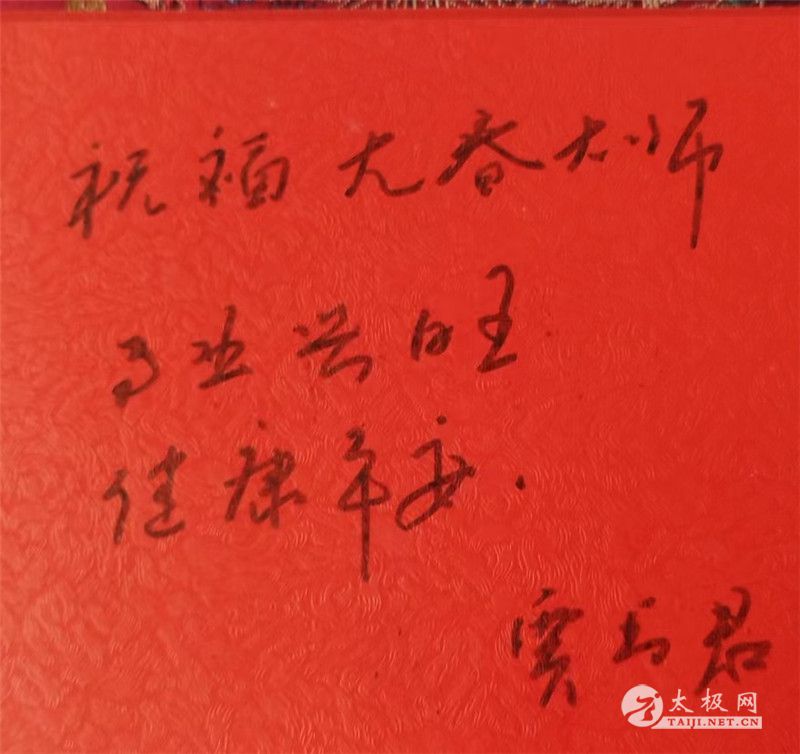 祝福尤春大师
事业兴旺
健康平安.
贾 君
太极网
TAIJI.NET.CN